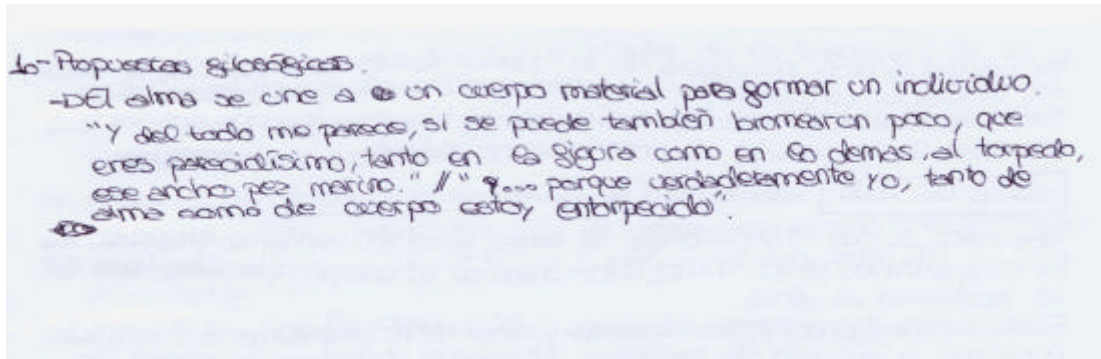 1o-Propuestas filosóficas.
-DEl alma se une a un cuerpo material para formar un individuo.
"Y del todo me parece, si se puede también bromear un poco, que
eres parecidísimo, tanto en la figura como en lo demás, al torpedo,
ese ancho pez marino." // "... porque verdaderamente yo, tanto de
alma como de cuerpo estoy entorpecido".